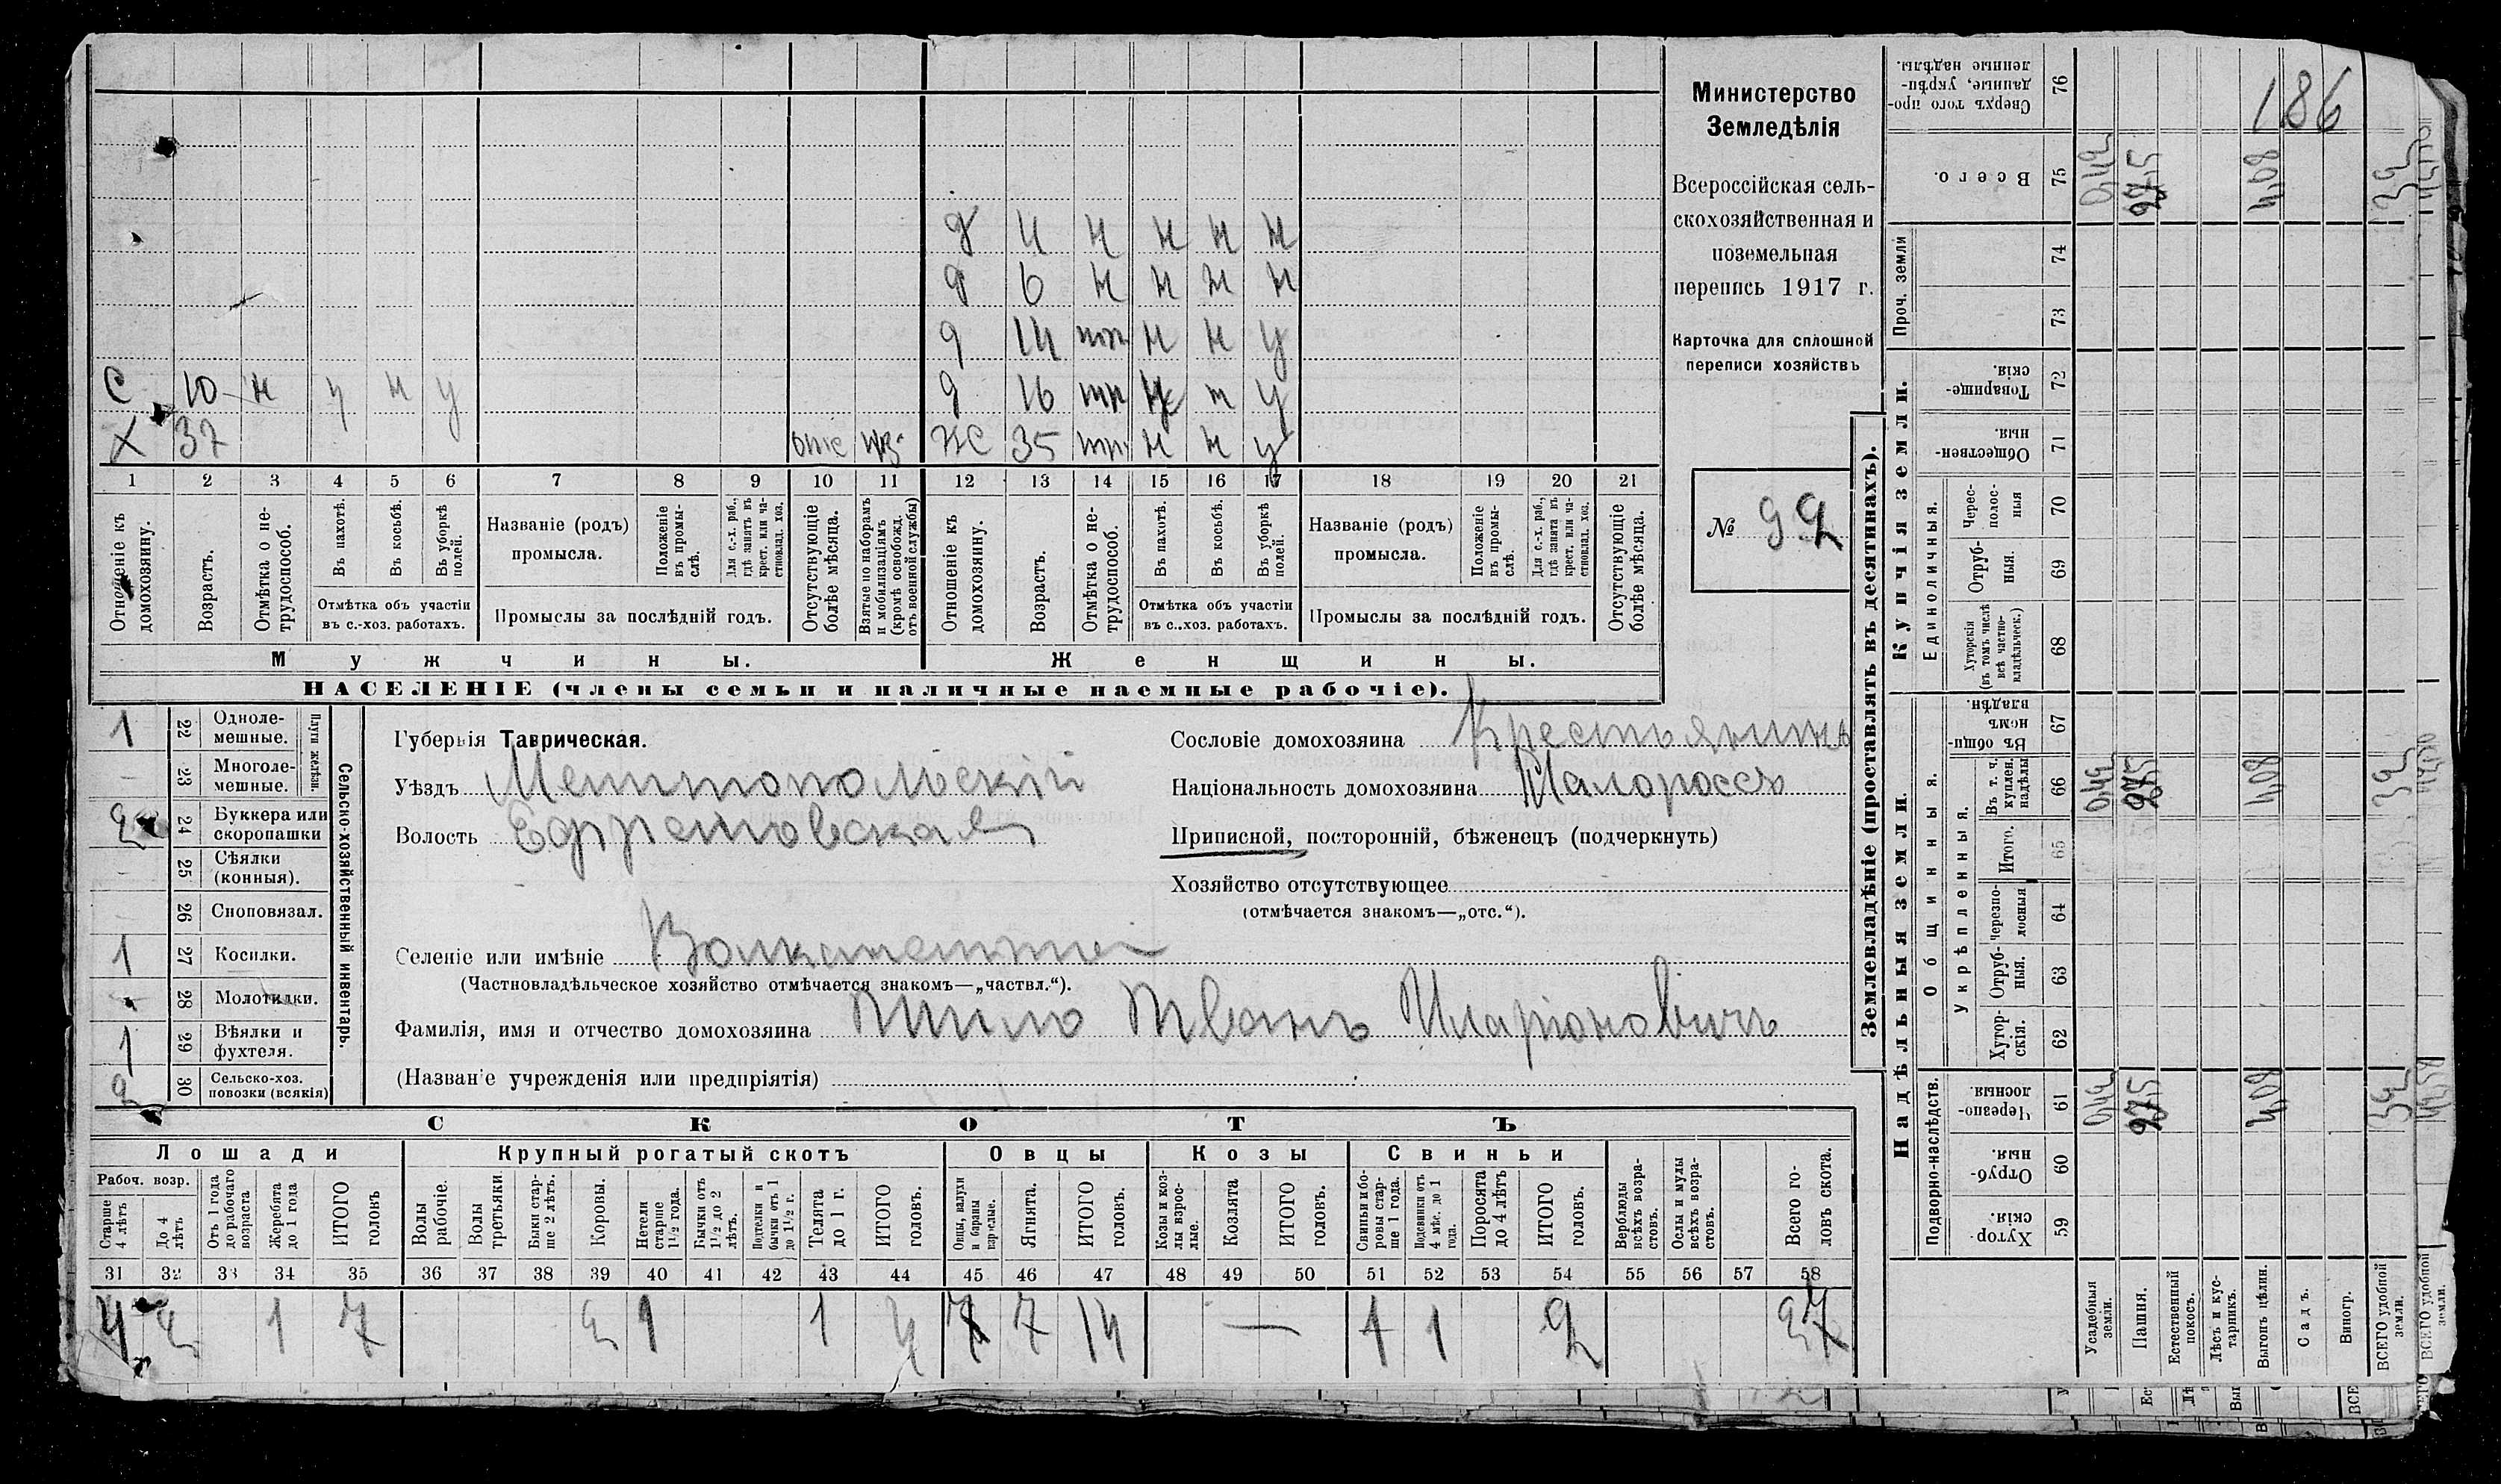 186
Министерство
Земледѣлія
Всероссійская сель-
скохозяйственная и
поземельная
перепись 1917 г.
Карточка для сплошной
переписи хозяйствъ
№ 92
д 4 н н н н
д 6 н н н н
д 14 пп н н у
д 16 н у
С 10 н у н у
Х 37 отс Ж 35 н н у
1 2 3 4 5 6 7 8 9 10 11 12 13 14 15 16 17 18 19 20 21
Отношеніе къ домохозяину.
Возрастъ.
Отмѣтка о не-трудоспособ.
Въ пахотѣ.
Въ косьбѣ.
Въ уборкѣ полей.
Отмѣтка объ участіи
въ с.-хоз. работахъ.
Названіе (родъ)
промысла.
Положеніе въ промы-слѣ.
Для с.-х. раб., гдѣ занятъ въ крест. или ча-стновлад. хоз.
Промыслы за послѣдній годъ.
Отсутствующіе болѣе мѣсяца.
Взятые по наборамъ и мобилизаціямъ (кромѣ освобожд. отъ военной службы)
Отношеніе къ домохозяину.
Возрастъ.
Отмѣтка о не-трудоспособ.
Въ пахотѣ.
Въ косьбѣ.
Въ уборкѣ полей.
Отмѣтка объ участіи
въ с.-хоз. работахъ.
Названіе (родъ)
промысла.
Положеніе въ промы-слѣ.
Для с.-х. раб., гдѣ занята въ крест. или ча-стновлад. хоз.
Промыслы за послѣдній годъ.
Отсутствующіе болѣе мѣсяца.
Мужчины. Женщины.
НАСЕЛЕНІЕ (члены семьи и наличные наемные рабочіе).
Сельско-хозяйственный инвентарь.
Плуги желѣзн.
1 22 Одноле-мешные.
23 Многоле-мешные.
2 24 Буккера или скоропашки
25 Сѣялки (конныя).
26 Сноповязал.
1 27 Косилки.
28 Молотилки.
1 29 Вѣялки и фухтеля.
2 30 Сельско-хоз. повозки (всякія)
Губернія Таврическая.
Уѣздъ Мелитопольскій
Волость Ефремовская
Сословіе домохозяина Крестьянинъ
Національность домохозяина Малороссъ
Приписной, посторонній, бѣженецъ (подчеркнуть)
Хозяйство отсутствующее
(отмѣчается знакомъ—„отс.“).
Селеніе или имѣніе
(Частновладѣльческое хозяйство отмѣчается знакомъ—„частвл.“).
Фамилія, имя и отчество домохозяина Шило Иванъ Иларіоновичъ
(Названіе учрежденія или предпріятія)
СКОТЪ
Лошади Крупный рогатый скотъ Овцы Козы Свиньи
Рабоч. возр.
Старше 4 лѣтъ
До 4 лѣтъ
Отъ 1 года до рабочаго возраста
Жеребята до 1 года
ИТОГО головъ
Волы рабочіе.
Волы третьяки.
Быки стар-ше 2 лѣтъ.
Коровы.
Нетели старше 1½ года.
Бычки отъ 1½ до 2 лѣтъ.
Подтелки и бычки отъ 1 до 1½ г.
Телята до 1 г.
ИТОГО головъ.
Овцы, валухи и бараны взрослые.
Ягнята.
ИТОГО головъ.
Козы и коз-лы взрос-лые.
Козлята
ИТОГО головъ.
Свиньи и бо-ровы стар-ше 1 года.
Подсвинки отъ 4 мѣс. до 1 года.
Поросята до 4 лѣтъ
ИТОГО головъ.
Верблюды всѣхъ возра-стовъ.
Ослы и мулы всѣхъ возра-стовъ.
Всего го-ловъ скота.
31 32 33 34 35 36 37 38 39 40 41 42 43 44 45 46 47 48 49 50 51 52 53 54 55 56 57 58
4 2 1 7 2 1 1 4 7 7 14 — 1 1 2 27
Землевладѣніе (проставлять въ десятинахъ).
Купчія земли.
Надѣльныя земли.
Проч. земли
Единоличныя.
Общинныя.
Укрѣпленныя.
Подворно-наслѣдств.
76 Сверхъ того про-данные, укрѣп-ленные надѣлы.
75 Всего. 0,42 27,5 4,08 32
74
73
72 Товарище-скія.
71 Обществен-ныя.
70 Черес-полос-ныя
69 Отруб-ныя.
68 Хуторскія (въ томъ числѣ всѣ частно-владѣльческ.)
67 Въ общин-номъ владѣн.
66 Въ т. ч. куплен. надѣлы 0,42 27,5 4,08 32
65 Итого.
64 Черезпо-лосныя
63 Отруб-ныя.
62 Хутор-скія.
61 Черезпо-лосныя 0,42 27,5 4,08 32
60 Отруб-ныя.
59 Хутор-скія.
Усадебныя земли.
Пашня.
Естественный покосъ.
Лѣсъ и кус-тарникъ.
Выгонъ цѣлин.
Садъ.
Виногр.
ВСЕГО удобной земли.
ВСЕГО удобной земли.